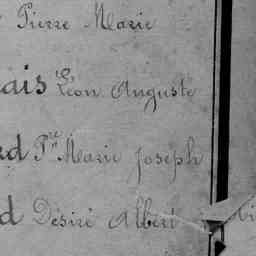 Pierre Marie
ais Léon Auguste
rd Pre Marie Joseph
d Désiré Albert